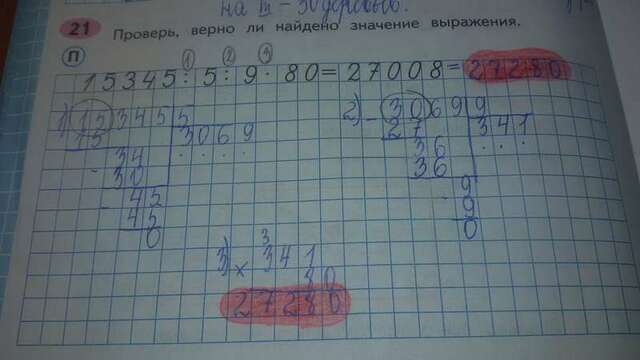 на III - 30 деревьев.
21 Проверь, верно ли найдено значение выражения.
П
1 2 3
15345 : 5 : 9 · 80 = 27008 = 27280
1) 15345 5
15 3069
34
30
45
45
0
2) 3069 9
27 341
36
36
9
9
0
3) 3
× 341
80
27280